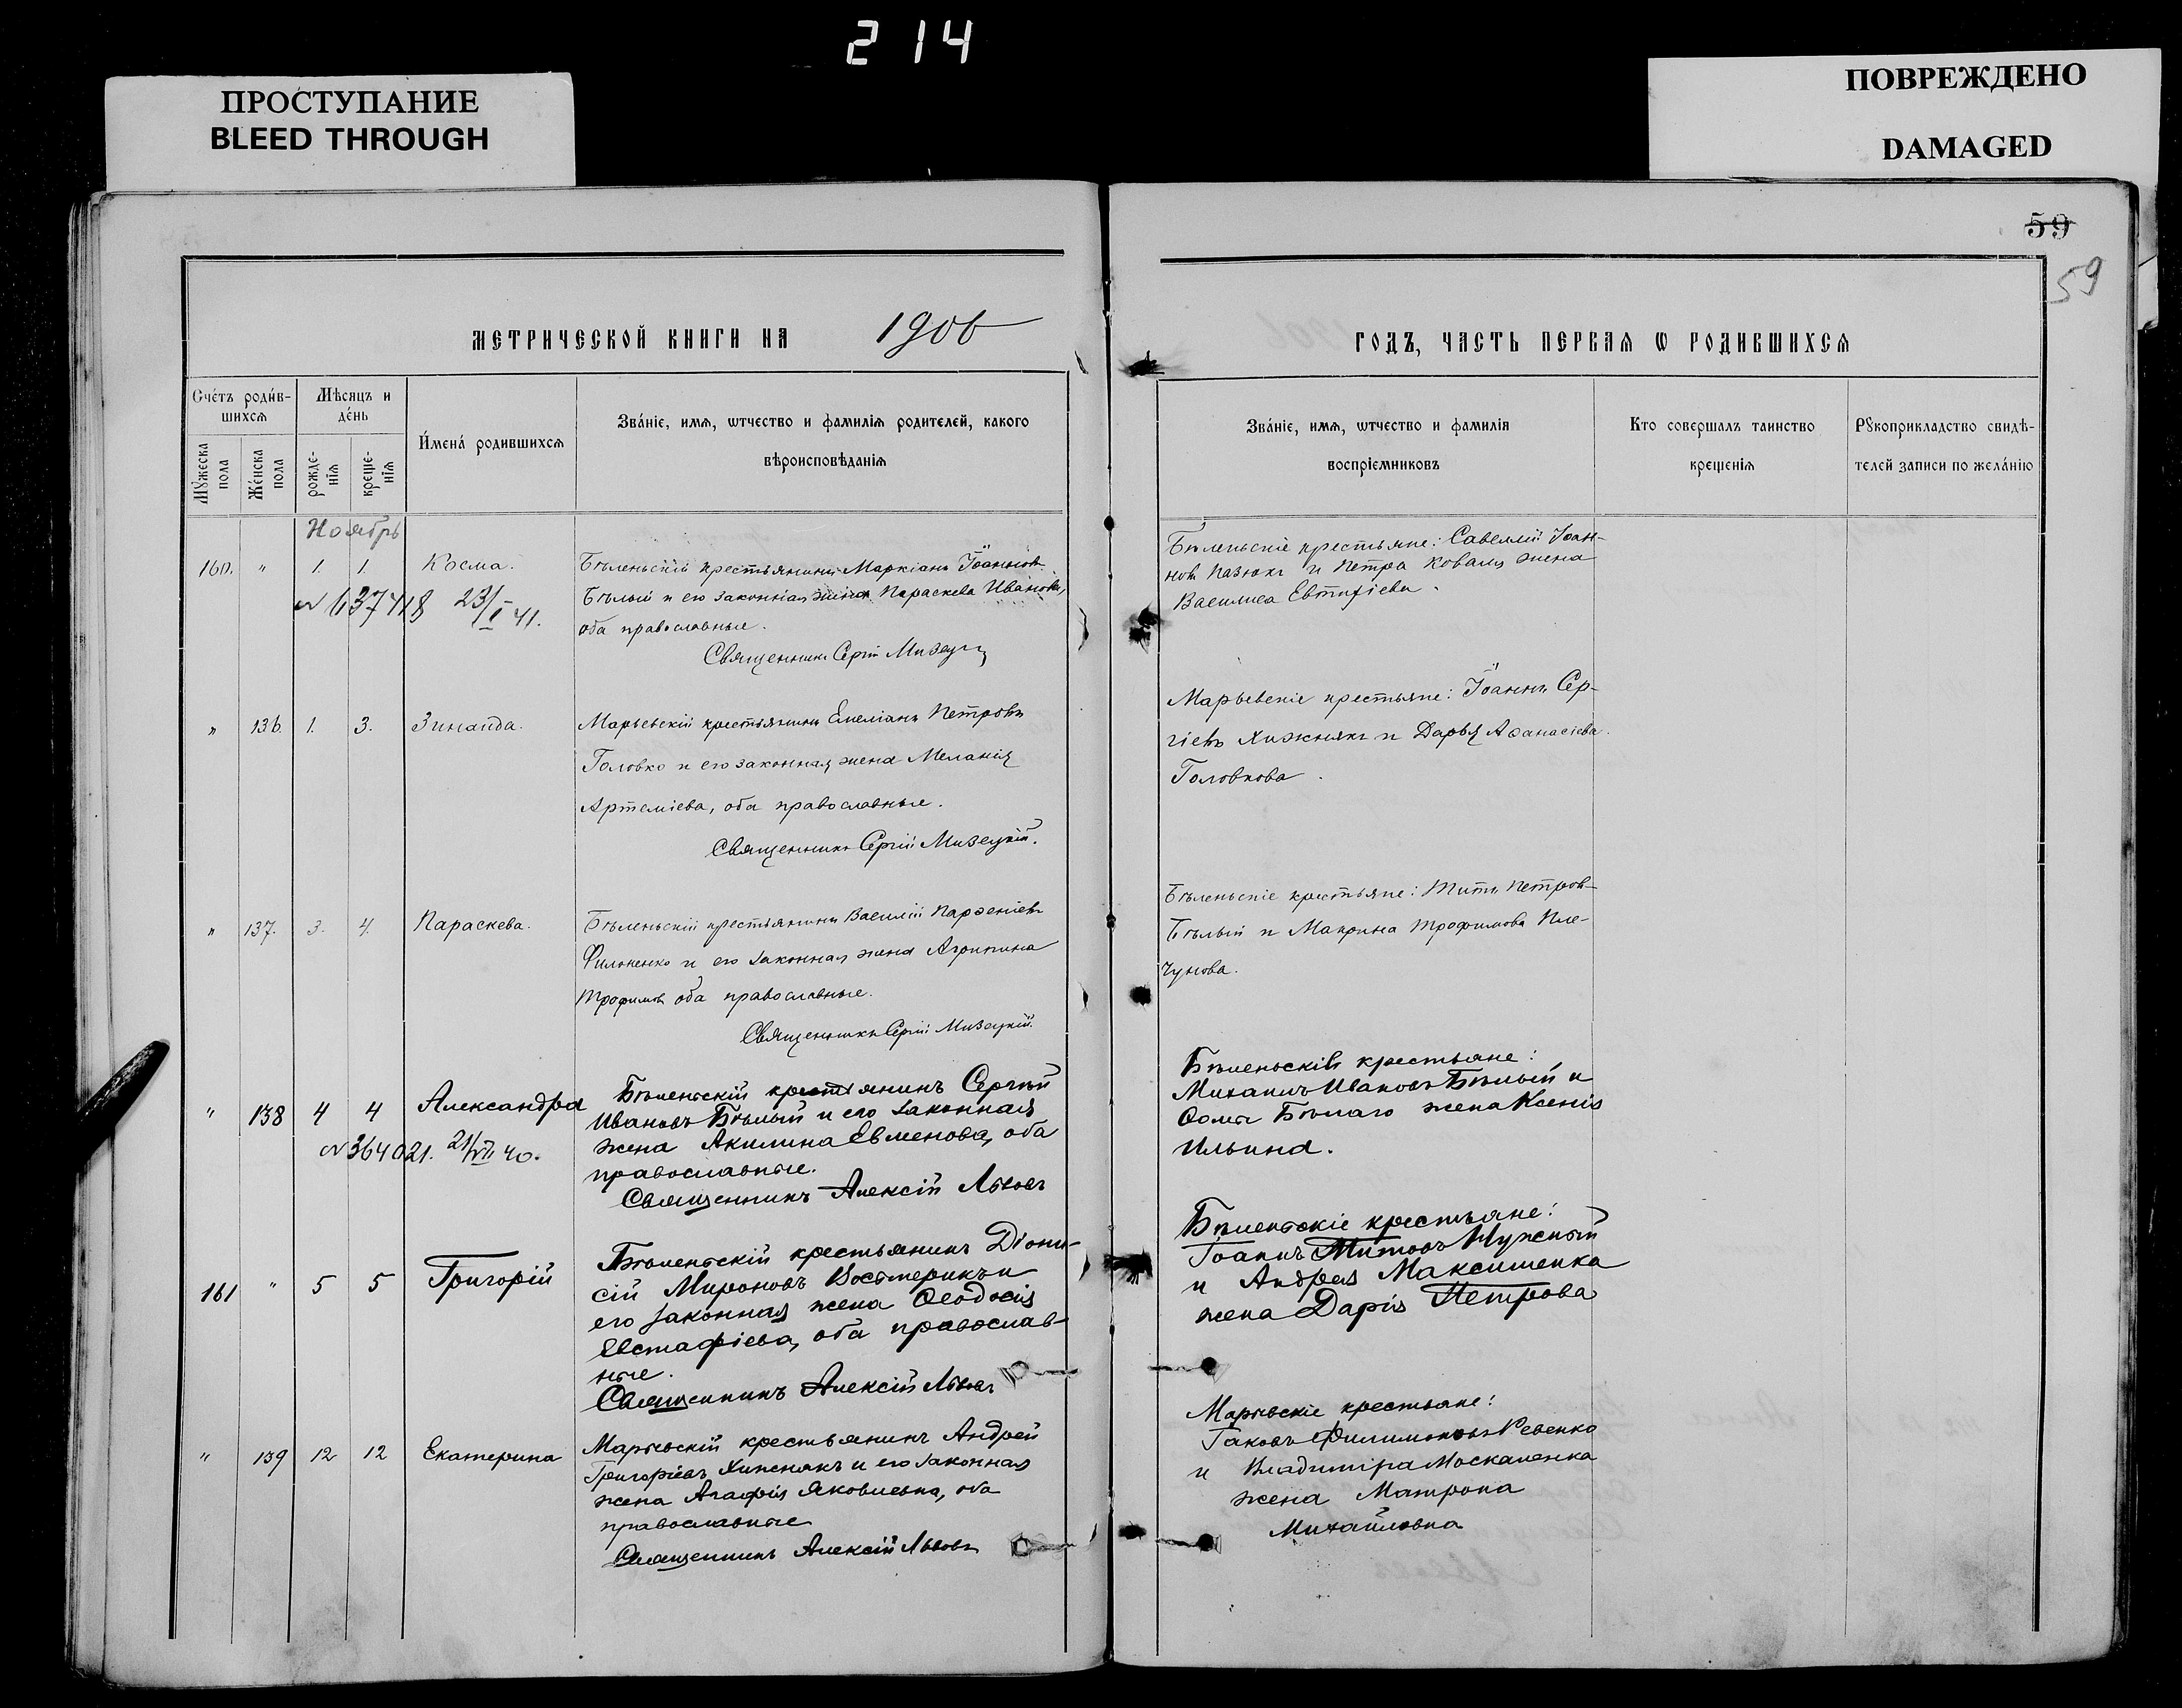 214
ПРОСТУПАНИЕ
BLEED THROUGH
ПОВРЕЖДЕНО
DAMAGED
59
59
МЕТРИЧЕСКОЙ КНИГИ НА 1906
ГОДЪ, ЧАСТЬ ПЕРВАЯ Ѡ РОДИВШИХСЯ
Сче́тъ роди́в-
шихсѧ
Мѣсяцъ и
де́нь
Мꙋжеска
пола
Же́нска
пола
рожде-
нїѧ
креще-
нїѧ
И́мена́ родившихсѧ
Зва́нїе, имѧ, ѡтчество и фамилїѧ родителей, какого
вѣроисповѣданїѧ
Зва́нїе, имѧ, ѡтчество и фамилїѧ
воспрїемниковъ
Кто совершалъ таинство
крещенїѧ
Рꙋкоприкладство свидѣ-
телей записи по жела́нїю
Ноябрь
160. " 1. 1. Косма.
№ 637418 23/I 41.
Бѣленьскій крестьянинъ Маркіанъ Іоанновъ
Бѣлый и его законная жена Параскева Иванова,
оба православные.
Священникъ Сергій
Бѣленьскіе крестьяне: Савелій Іоан-
новъ Казюкъ и Петра Коваля жена
Василиса Евтихіева.
" 136. 1. 3. Зинаида.
Марьевскій крестьянинъ Емеліанъ Петровъ
Головко и его законная жена Меланія
Артеміева, оба православные.
Священникъ Сергій Мизецкій.
Марьевскіе крестьяне: Іоаннъ Сер-
гіевъ Хижнякъ и Дарья Аѳанасіева
Головкова.
" 137. 3. 4. Параскева.
Бѣленьскій крестьянинъ Василій Парѳеніевъ
Филоненко и его законная жена Агрипина
Трофимова оба православные.
Священникъ Сергій Мизецкій.
Бѣленьскіе крестьяне: Титъ Петровъ
Бѣлый и Макрина Трофимова Пле-
чунова.
" 138 4 4 Александра
№ 364021. 21/VII 40.
Бѣленьскій крестьянинъ Сергѣй
Ивановъ Бѣлый и его законная
жена Акилина Евменова, оба
православные.
Священникъ Алексій Львовъ
Бѣленьскіе крестьяне:
Михаилъ Ивановъ Бѣлый и
Ѳомы Бѣлаго жена Ксенія
Ильина.
161 " 5 5 Григорій
Бѣленьскій крестьянинъ Діони-
сій Мироновъ Восьмерикъ и
его законная жена Ѳеодосія
Евстафіева, оба православ-
ные.
Священникъ Алексій Львовъ
Бѣленьскіе крестьяне:
Іоаннъ Титовъ Нужный
и Андрея Максименка
жена Дарія Петрова
" 139 12 12 Екатерина
Марьевскій крестьянинъ Андрей
Григоріевъ Хижнякъ и его законная
жена Агафія Яковлевна, оба
православные
Священникъ Алексій Львовъ
Марьевскіе крестьяне:
Іаковъ Филимоновъ Ревенко
и Владиміра Москаленка
жена Матрона
Михайловна